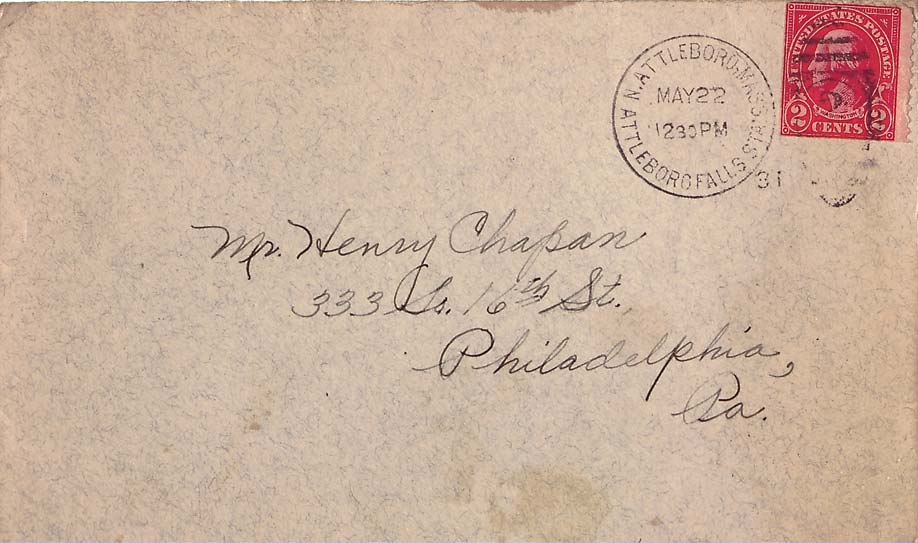 UNITED STATES POSTAGE
WASHINGTON
2 CENTS 2
N. ATTLEBORO, MASS.
MAY 22
12 30 PM
ATTLEBORO FALLS STA.
31
Mr. Henry Chapan
333 So. 16th St.
Philadelphia,
Pa.